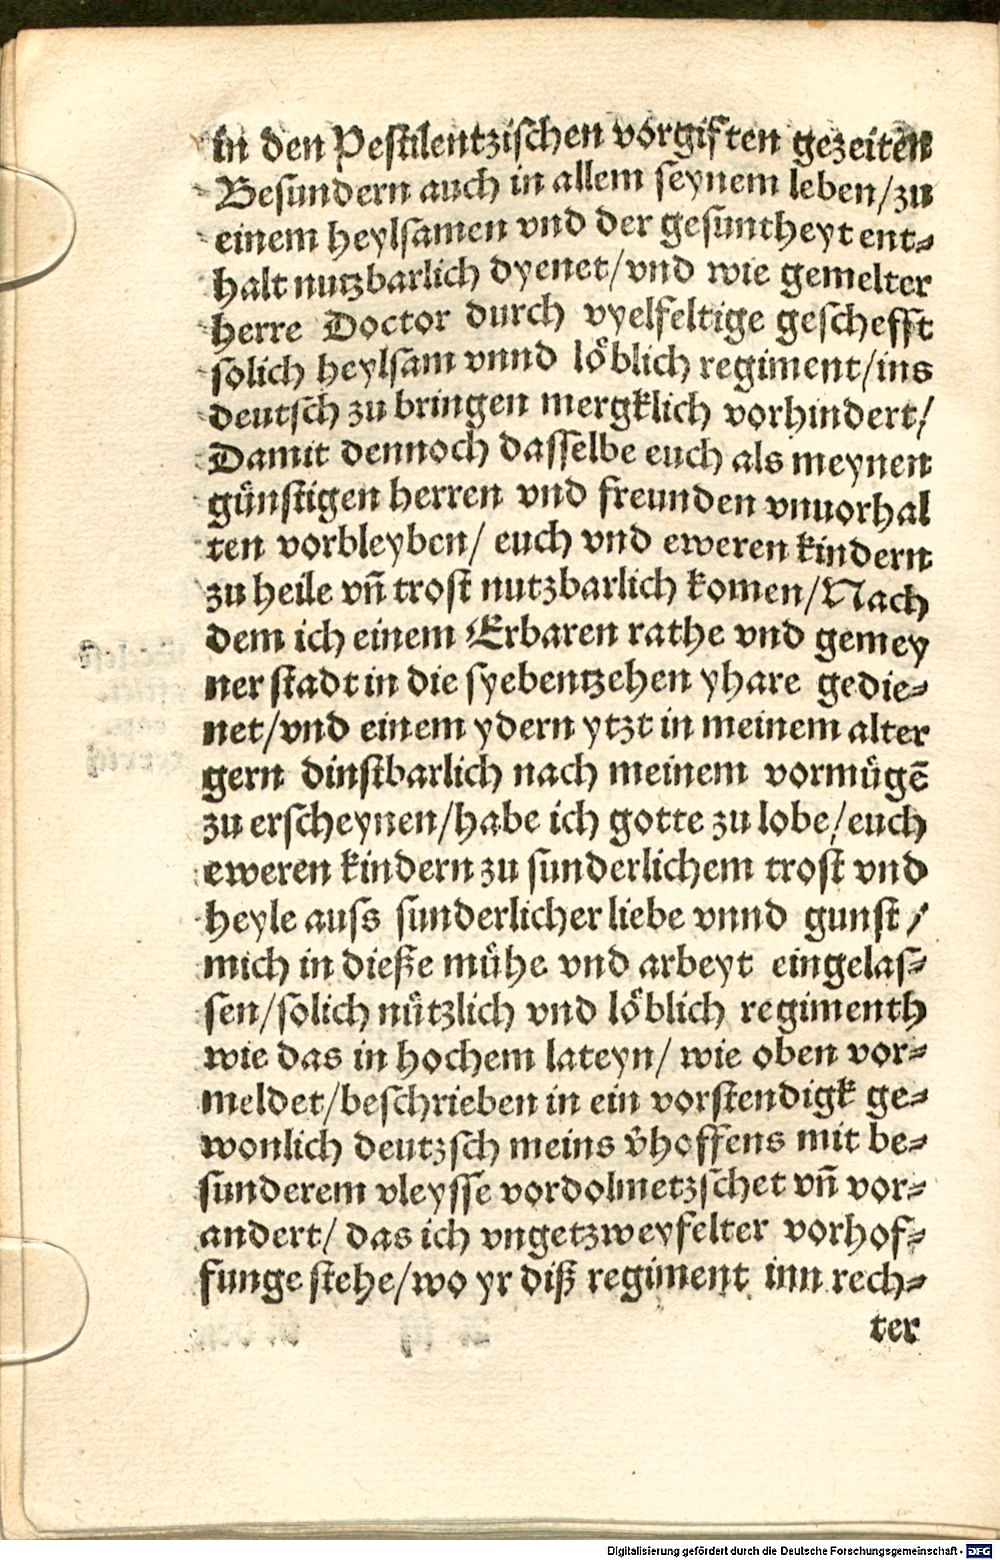 in den Pestilentzischen vorgiften gezeiten
Besundern auch in allem seynem leben/zu
einem heylsamen vnd der gesuntheyt ent⸗
halt nutzbarlich dyenet/vnd wie gemelter
herre Doctor durch vyelfeltige geschefft
solich heylsam vnnd löblich regiment/ins
deutsch zu bringen mergklich vorhindert/
Damit dennoch dasselbe euch als meynen
günstigen herren vnd freunden vnuorhal
ten vorbleyben/ euch vnd eweren kindern
zu heile vn̄ trost nutzbarlich komen/Nach
dem ich einem Erbaren rathe vnd gemey
ner stadt in die syebentzehen yhare gedie⸗
net/vnd einem ydern ytzt in meinem alter
gern dinstbarlich nach meinem vormügē
zu erscheynen/habe ich gotte zu lobe/euch
eweren kindern zu sunderlichem trost vnd
heyle auss sunderlicher liebe vnnd gunst/
mich in dieße mühe vnd arbeyt eingelas⸗
sen/solich nützlich vnd löblich regimenth
wie das in hochem lateyn/ wie oben vor⸗
meldet/beschrieben in ein vorstendigk ge⸗
wonlich deutzsch meins v̄hoffens mit be⸗
sunderem vleysse vordolmetzschet vn̄ vor⸗
andert/ das ich vngetzweyfelter vorhof⸗
funge stehe/wo yr diß regiment inn rech⸗
ter
Digitalisierung gefördert durch die Deutsche Forschungsgemeinschaft - DFG